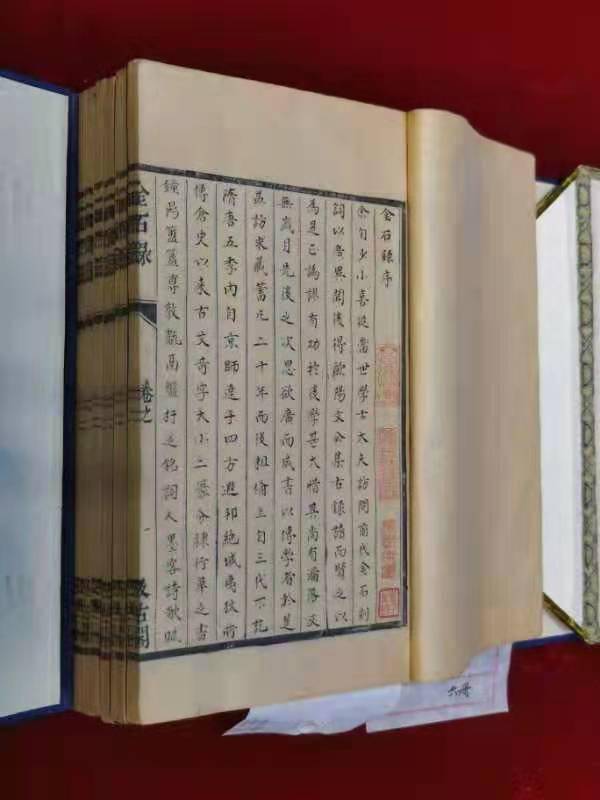 金石錄序
余自少小喜從當世學士大夫訪問前代金石刻
詞以廣異聞後得歐陽文公集古錄讀而賢之以
為是正譌謬有功於後學甚大惜其尚有漏落又
無歲月先後之次思欲廣而成書以傳學者於是
益訪求藏蓄凡二十年而後粗備上自三代下訖
隋唐五季內自京師達于四方遐邦絕域夷狄所
傳倉史以來古文奇字大小二篆分隸行草之書
鐘鼎簠簋尊敦甗鬲盤杅之銘詞人墨客詩歌賦
金石錄 卷之 一 汲古閣
六冊